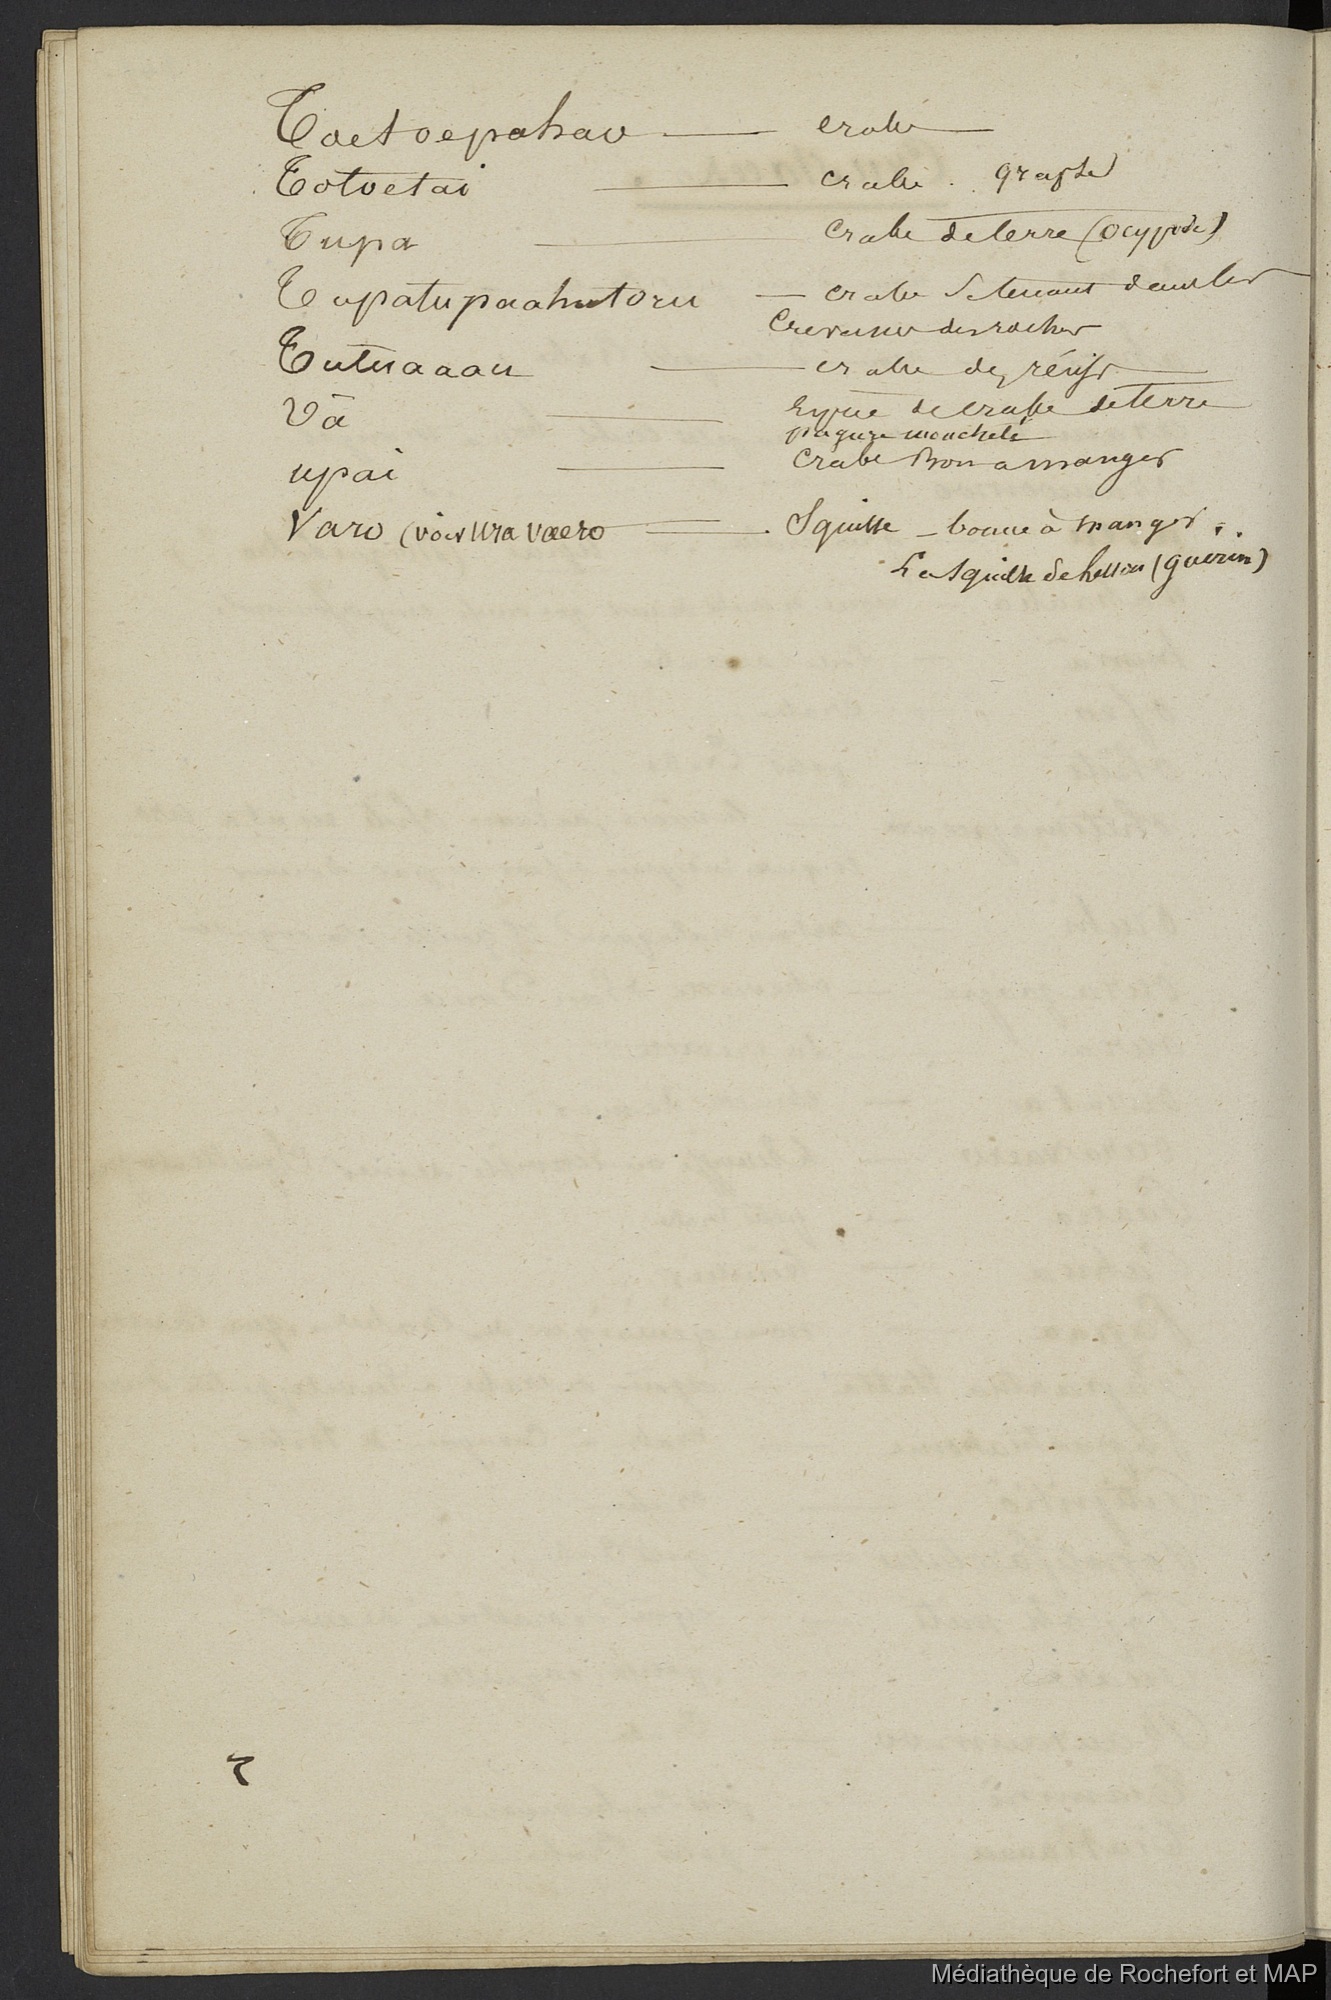 Toetoepahao — crabe
Totoetai — crabe. grapse
Tupa — crabe de terre (ocypode)
Tupatupaahutoru — crabe se tenant dans les
crevasses des rochers
Tutuaaau — crabe des récifs
Vā — Espece de crabe de terre
pagure moucheté
upai — crabe Bon a manger
Varo (voir Ura Vaero — Squille — bonne à manger.
La squille de Lesson (guerin)
Médiathèque de Rochefort et MAP